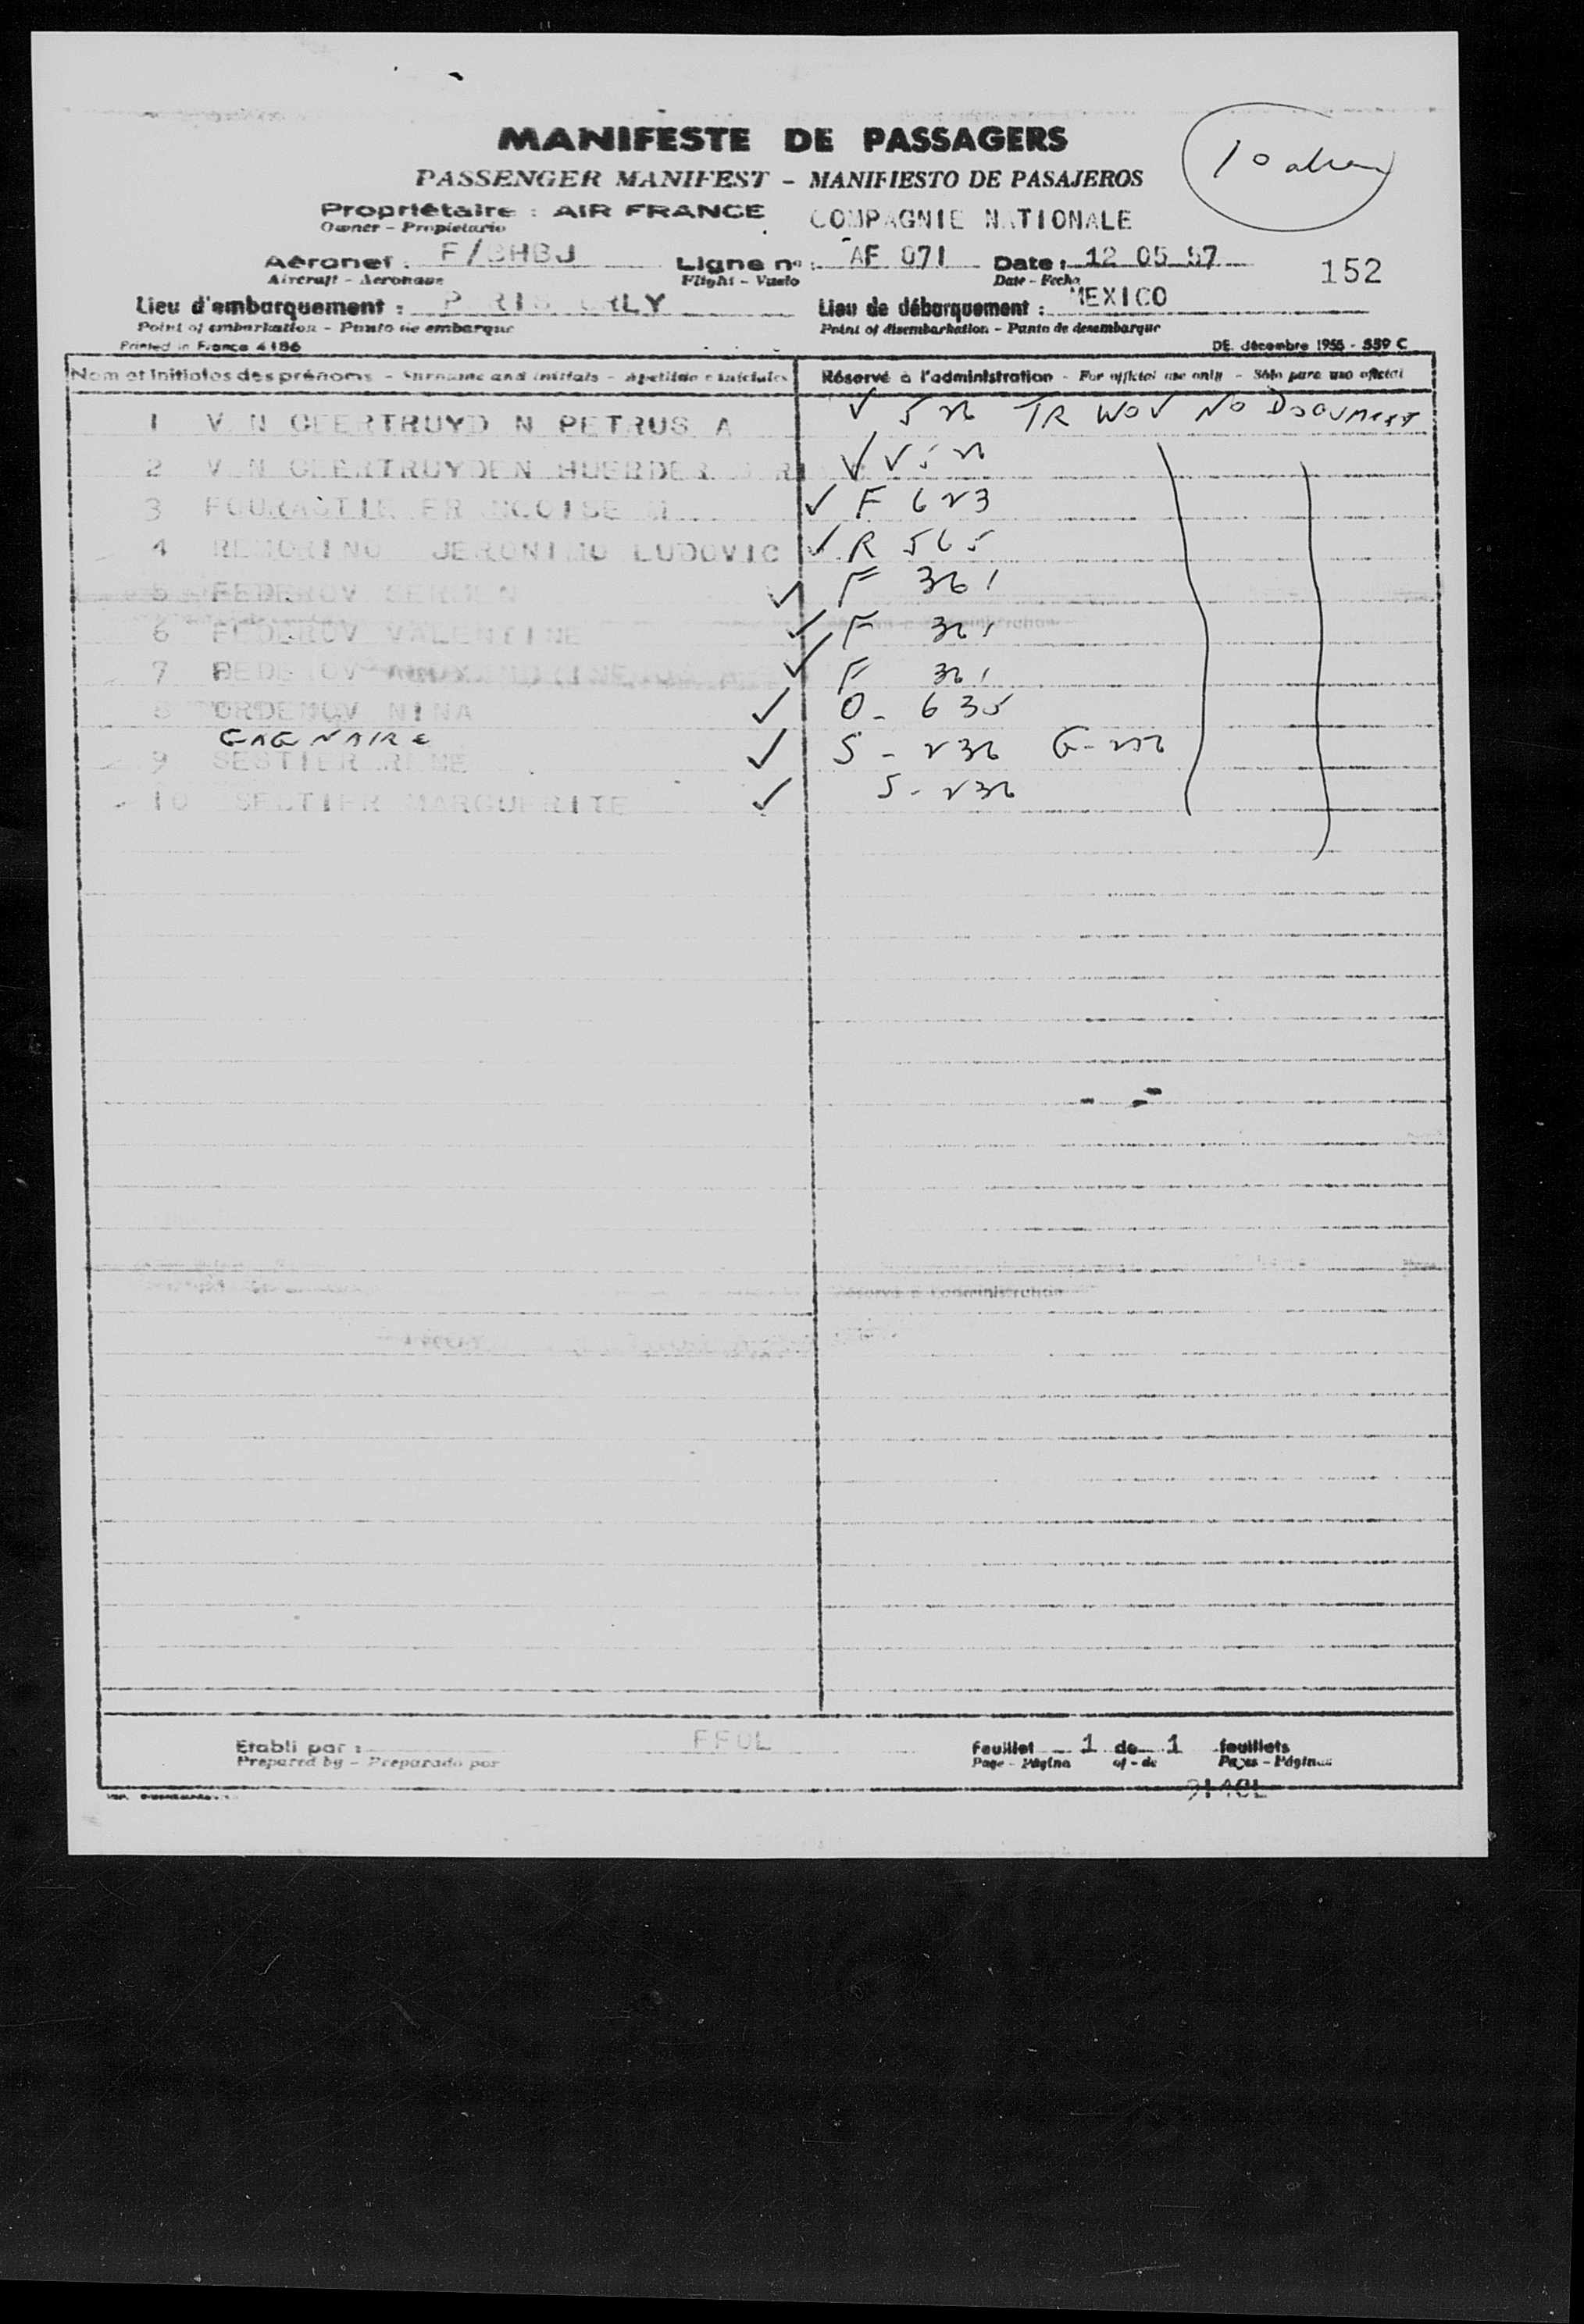 MANIFESTE DE PASSAGERS
10
PASSENGER MANIFEST - MANIFIESTO DE PASAJEROS
Propriétaire : AIR FRANCE COMPAGNIE NATIONALE
Owner - Propietario
Aéronef : F/BHBJ Ligne nº : AF 071 Date : 12 05 57 152
Aircraft - Aeronave Flight - Vuelo Date - Fecha
Lieu d'embarquement : P RIS ORLY Lieu de débarquement : MEXICO
Point of embarkation - Punto de embarque Point of disembarkation - Punto de desembarque
Printed in France 4186 DE. décembre 1955 - 559 C
Nom et initiales des prénoms - Surname and initials - Apellido e iniciales Réservé à l'administration - For official use only - Sólo para uso oficial
1 V N GEERTRUYD N PETRUS A ✓ 526 TR WOV NO DOCUMENT
2 V N GEERTRUYDEN HUERDER ✓ V 526
3 FOURASTIE FR NCOISE M ✓ F 623
4 REMORINO JERONIMO LUDOVIC ✓ R 565
5 FEDEROV ✓ F 361
6 FEDEROV VALENTINE ✓ F 361
7 FEDEROV ✓ F 361
8 ORDENOV NINA ✓ O - 635
GAGNAIRE
9 SESTIER RENE ✓ S - 236 G -
10 SESTIER MARGUERITE ✓ S - 236
Etabli par : FFOL Feuillet 1 de 1 feuillets
Prepared by - Preparado por Page - Página of - de Pages - Páginas